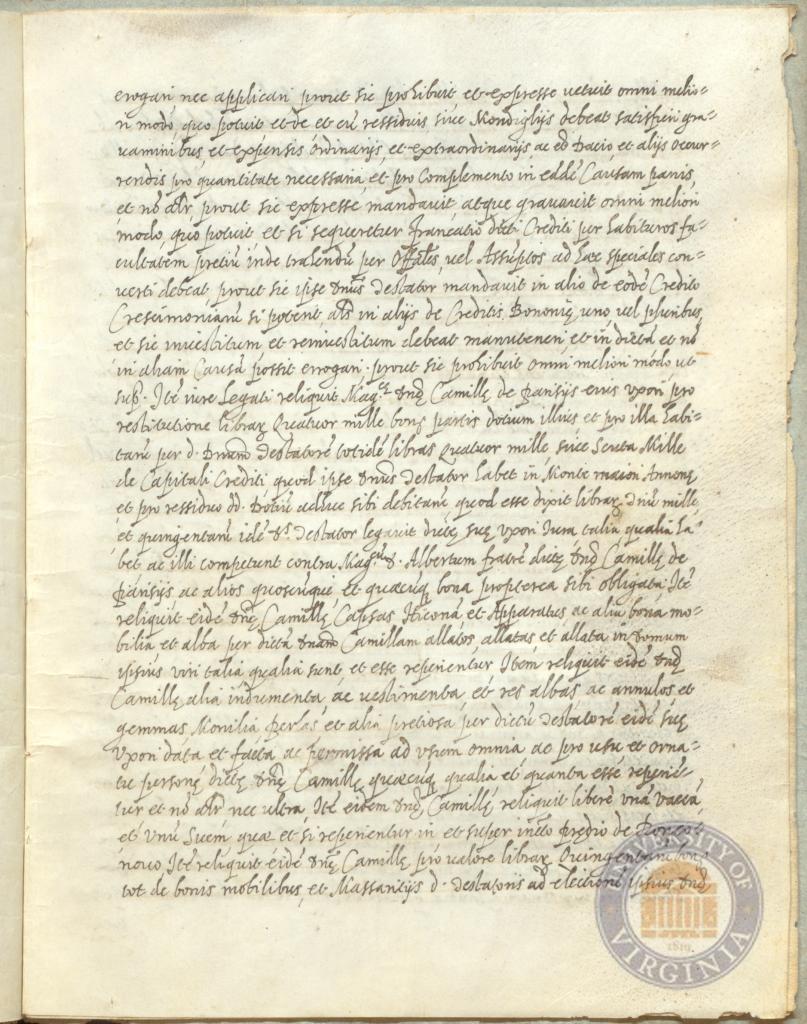 erogari, nec applicari prout sic prohibuit et expresse vetuit omni melio-
ri modo, quo potuit et de et cū ressiduis, sive Mondiglijs debeat satisfieri gra-
vaminibus, et expensis ordinarijs, et extraordinarijs ac eō Dacio et alijs occur-
rendis pro quantitate necessaria, et pro Complemento in eādē Causam panis,
et nō alr̄, prout sic expresse mandavit, atque gravavit omni meliori
modo, quo potuit et si sequeretur francatio dicti Crediti per habituros fa-
cultatem pretiū inde trahendū per Offāles, vel Assūptos ad hæc speciales con-
verti debeat, prout sic ipse dnūs Testator mandavit in alio de eodē Credito
Crescimonianū si poterit, als in alijs de Creditis Bononię, uno vel pluribus,
et sic investitum et reinvestitum debeat manuteneri et in dictā et nō
in aliam Causā possit errogari, prout sic prohibuit omni meliori modo ut
sup. Itē iure Legati reliquit Mag. dnę Camillę de Pansijs eius uxori pro
restitutione librar Quatuor mille bonę partis dotium illius et pro illa habi-
tarū per d. Dnum Testatorē totidē libras Quatuor mille sive Scuta Mille
de Capitali Crediti quod ipse dnūs Testator habet in Monte maiori Annonę
et pro ressiduo dd. Dotiū adhuc sibi debitarū quod esse dixit librar dnū mille,
et quingentarū idē ds Testator legavit dictę suę uxori iura talia qualia ha-
bet ac illi competunt contra Mag. d. Albertum fratrē dictę dnę Camillę de
Pansijs ac alios quoscūque et quæcūq bona propterea sibi obligata Itē
reliquit eidē dnę Camillę Capsas Iticona et Apparatus ac alia bona mo-
bilia, et alba per dictā dnam Camillam allatos, allatas et allata in domum
ipsius viri talia qualia sunt, et esse reperientur Item reliquit eidē dnę
Camillę alia indumenta ac vestimenta et res albas ac annulos et
gemmas Monilia Perlas et alia pretiosa per dictū Testatorē eidē suę
Uxori data et facta ac permissa ad usum omnia ac pro usu et orna-
tu personę dictę dnę Camillę quæcūq, qualia et quanta esse reperiē-
tur et nō alr̄ nec ultra, Itē eidem dnę Camillę reliquit liberè unā vaccā,
et unū Suem quæ et si reperientur in et super prędio de
novo Itē reliquit eidē dnę Camillę pro valore librar Quingentarū
tot de bonis mobilibus, et Massaritijs d. Testatoris ad electionē ipsius dnę
UNIVERSITY OF VIRGINIA
1819